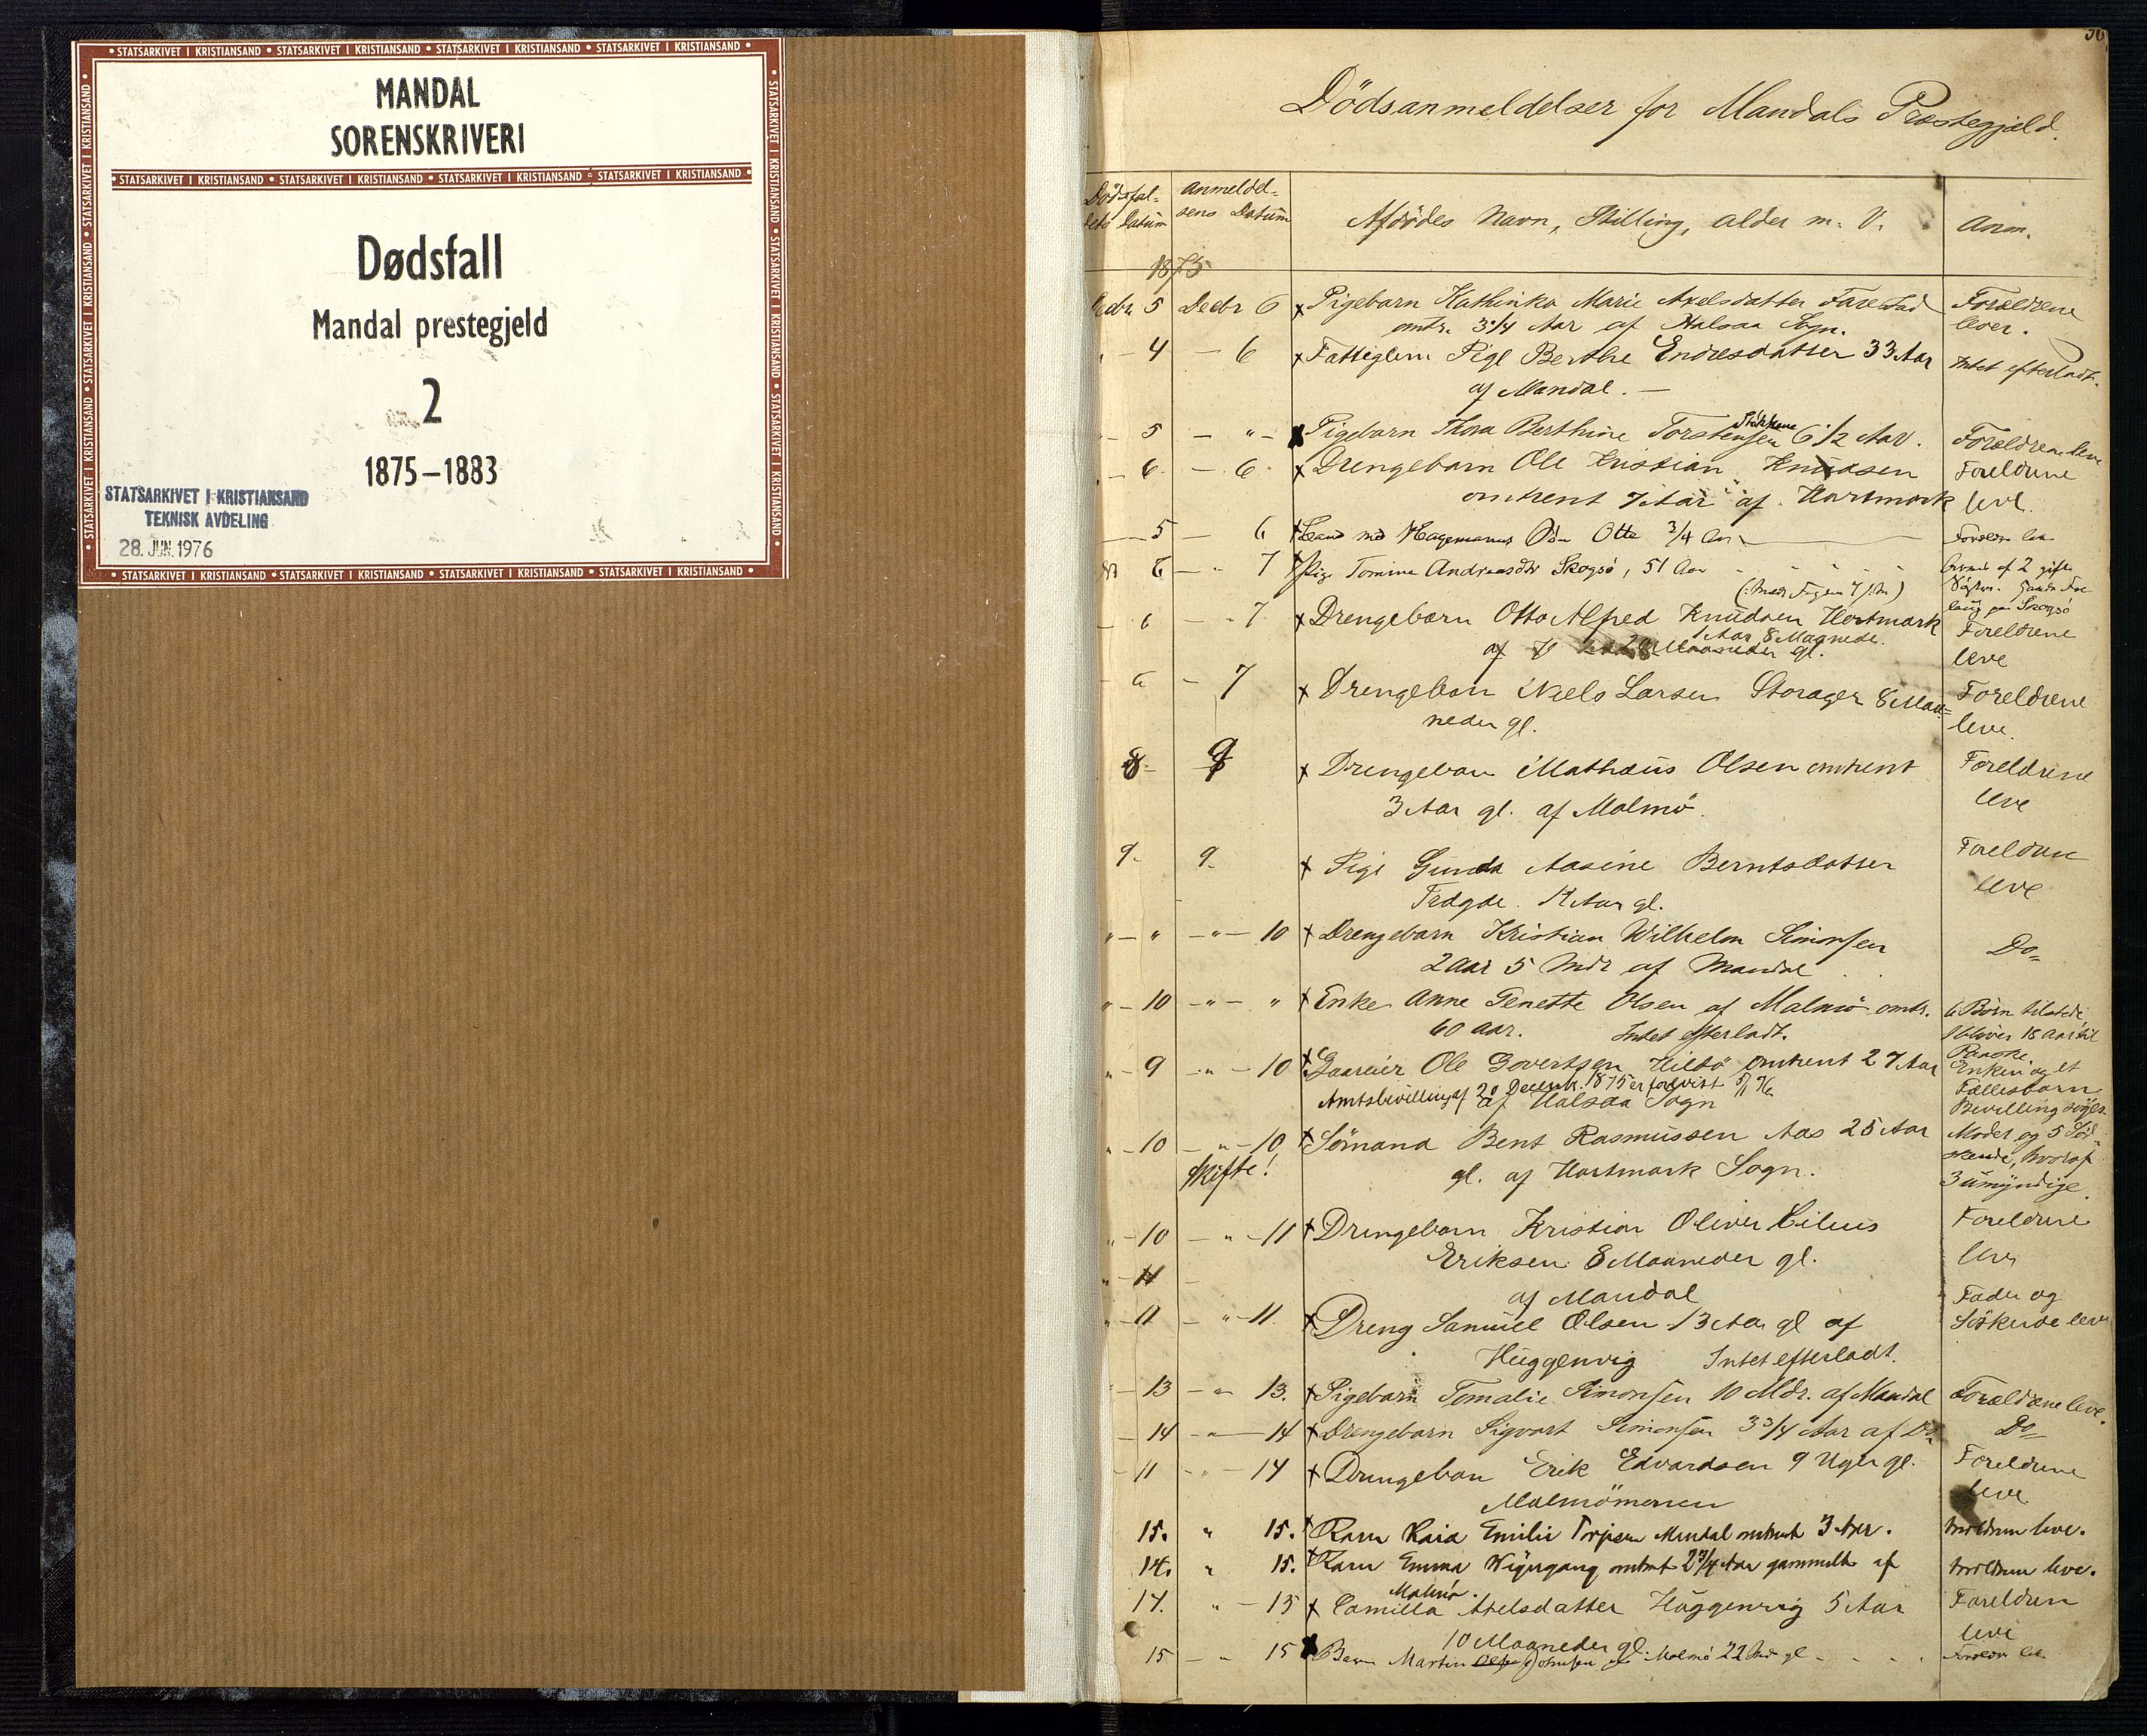 • STATSARKIVET I KRISTIANSAND • STATSARKIVET I KRISTIANSAND • STATSARKIVET I KRISTIANSAND • STATSARKIVET I KRISTIANSAND •
MANDAL
SORENSKRIVERI
• STATSARKIVET I KRISTIANSAND • STATSARKIVET I KRISTIANSAND • STATSARKIVET I KRISTIANSAND • STATSARKIVET I KRISTIANSAND •
Dødsfall
Mandal prestegjeld
2
1875–1883
STATSARKIVET I KRISTIANSAND
TEKNISK AVDELING
28. JUN. 1976
• STATSARKIVET I KRISTIANSAND • STATSARKIVET I KRISTIANSAND • STATSARKIVET I KRISTIANSAND • STATSARKIVET I KRISTIANSAND •
Dödsanmeldelser for Mandals Præstegjæld.
Dödsfal- Anmeldel-
dets Datum sens Datum Afdödes Navn, Stilling, Alder m. V. Anm.
1875
Decbr 5 Decbr 6 x Pigebarn Kathinka Marie Axelsdatter Farestad Forældrene
omtr. 3 1/4 Aar af Halsaa Sogn. lever.
- 4 - 6 x Fattiglem Pige Berthe Endresdatter 33 Aar Intet efterladt.
af Mandal. -
- 5 - " - Pigebarn Thora Berthine Torstensen 6 1/2 Aar. Forældrene leve
- 6 - 6 x Drengebarn Ole Kristian Knudsen Foreldrene
omtrent 7 Aar af Hartmark leve.
- 5 - 6 x Hagemanns Søn Otto 3/4 Aar
6 - " 7 x Pige Tomine Andreasdtr Skogsö, 51 Aar af 2 gifte
Skogsö
- 6 - 7 x Drengebarn Otto Alfred Knudsen Hartmark Foreldrene
1 Aar 8 Maanede.
af 20 Maaneder gl. leve
- 6 - 7 x Drengebarn Niels Larsen Storager 8 Maa= Foreldrene
neder gl. leve.
8 9 x Drengebarn Mathæus Olsen omtrent Foreldrene
3 Aar gl. af Malmö. leve
9. 9. x Pige Gunda Aasine Berntsdatter Foreldrene
Tregde. Aar gl. leve
" - " - " - 10 x Drengebarn Kristian Wilhelm Simonsen
2 Aar 5 Mdr af Mandal Do
" - 10 - " - " x Enke Anne Jenette Olsen af Malmö omtr. 6 Börn tilstede
60 Aar. Intet efterladt. 18 Aar til
Paaske.
" - 9 - " - 10 x Gaardeier Ole Govertsen Hildö omtrent 27 Aar Enken og et
Amtsbevilling af 20 Decemb. 1875 er forevist Fællesbarn
af Halsaa Sogn Bevilling söges.
" - 10 - " - 10 x Sömand Bent Rasmussen Aas 25 Aar Moder og 5 Söd-
Skifte! gl. af Hartmark Sogn. skende, hvoraf
3 umyndige.
" - 10 - " - 11 x Drengebarn Kristian Oliver Foreldrene
Eriksen 8 Maaneder gl. leve
" - 11 -
af Mandal Fader og
" - 11 - " - 11 x Dreng Samuel Olsen 13 Aar gl af Söskende leve
Huggenvig Intet efterladt.
- 13 - " - 13. x Pigebarn Tomalie Simonsen 10 Mdr. af Mandal Forældrene leve.
- 14 - " - 14 x Drengebarn Sigvart Simonsen 3 3/4 Aar af Do Do
- 11 - " - 14 x Drengebarn Erik Edvardsen 9 Uger gl. Foreldrene
Malmömonen leve
15. " 15. x Barn Emilie Torjesen Mandal omtrent 3 Aar. Forældrene leve.
14. " 15. x Barn Emma omtrent 2 3/4 Aar gammelt af Forældrene leve.
Malmö.
14. " - 15 x Camilla Axelsdatter Huggenvig 5 Aar Foreldrene
10 Maaneder gl. leve
15 - " 15 Barn Martin Johnsen Malmö 22 Md gl